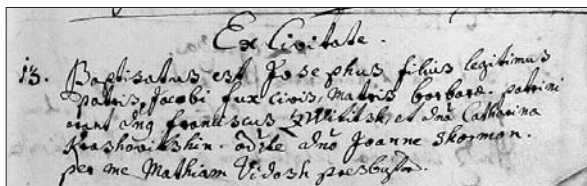 Ex Civitate.
13. Baptisatus est Josephus filius legitimus
patris Jacobi fux civis, Matris borbaræ. patrini
erant dng franciscus et dnã Catharina
dnõ Joanne Skerman.
per me Mathiam Vidosh presbyter.